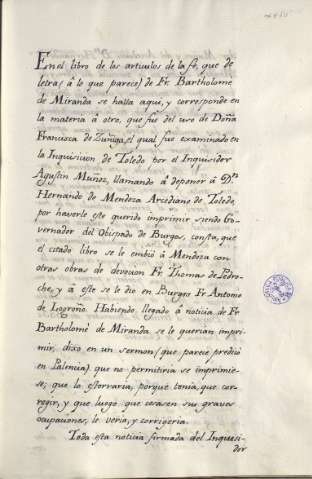 En el libro de los articulos de la fé, que de
letra (á lo que parece) de Fr. Bartholomé
de Miranda se halla aqui, y corresponde en
la materia á otro, que fué del uso de Doña
Francisca de Zuñiga, el qual fue examinado en
la Inquisicion de Toledo por el Inquisidor
Agustin Muñoz, llamando á deponer á Dn
Hernando de Mendoza Arcediano de Toledo,
por haverle este querido imprimir siendo Go-
vernador del Obispado de Burgos, consta, que
el citado libro se le embió á Mendoza con
otras obras de devocion Fr. Thomas de Pedro-
che, y á este se le dio en Burgos Fr. Antonio
de Logroño. Habiendo llegado á noticia de Fr.
Bartholomé de Miranda se le querian impri-
mir, dixo en un sermon (que parece predicó
en Palencia) que no permitiria se imprimie-
se; que lo estorvaria, porque tenia, que cor-
regir, y que luego que cesasen sus graves
ocupaciones, le veria, y corrigeria.
Toda esta noticia firmada del Inquisi-
dor